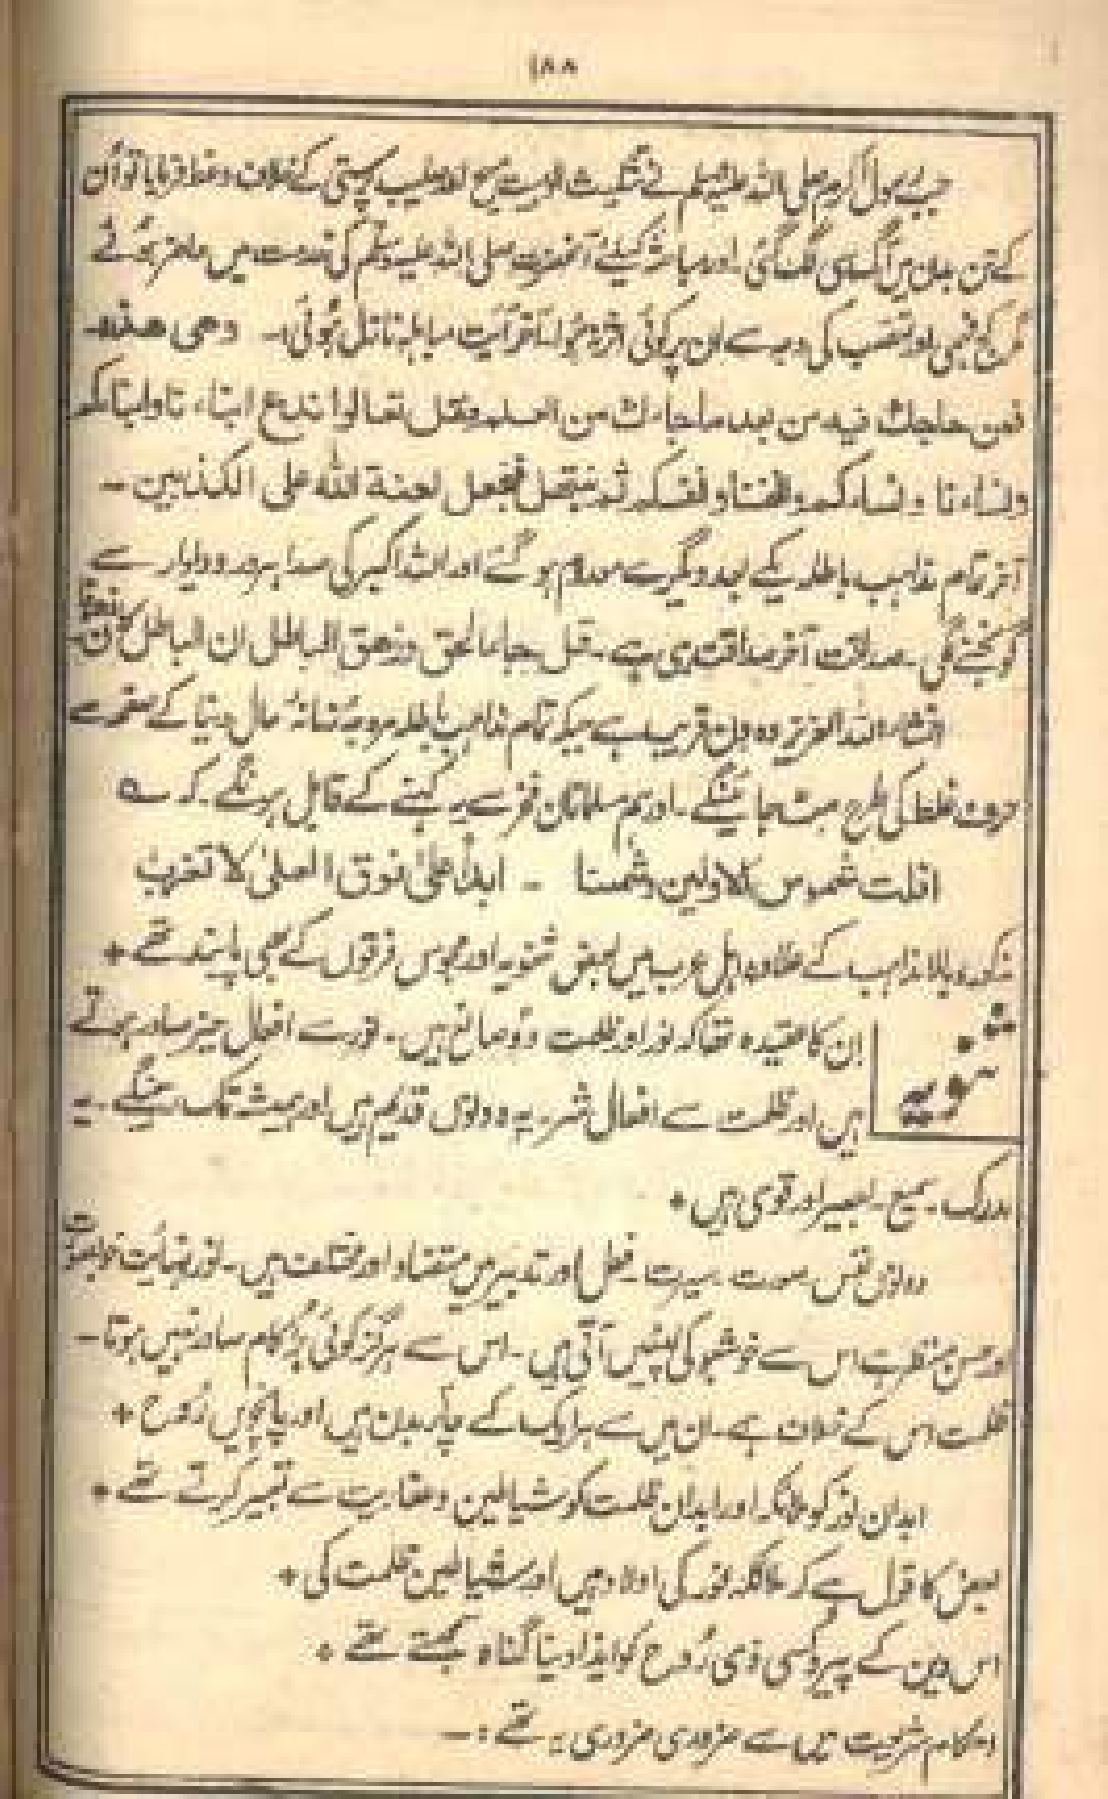 ۱۸۸
جب رسول اکرم صلی اللہ علیہ وسلم نے تثلیث الوہیت مسیح اور صلیب پرستی کے خلاف وعظ فرمایا تو ان
کے تن بدن میں آگ سی لگ گئی۔ اور مباحثہ کیلئے آنحضرت صلی اللہ علیہ وسلم کی خدمت میں حاضر ہوئے
مگر کج فہمی اور تعصب کی وجہ سے ان پر کوئی اثر نہ ہوا۔ آخر آیت مباہلہ نازل ہوئی۔ وھی ھذہ۔
فمن حاجک فیہ من بعد ما جاءک من العلم وفقل تعالوا ندع ابناء نا وابناءکم
ونساء نا ونساء کم وانفسنا وانفسکم ثم نبتھل فنجعل لعنۃ اللہ علی الکذبین۔
آخر تمام مذاہب باطلہ یکے بعد دیگرے معدوم ہو گئے اور اللہ اکبر کی صدا ہر در و دیوار سے
گونجنے لگی۔ صداقت آخر صداقت ہی ہے۔ قل جاء الحق وزھق الباطل ان الباطل کان زھوقا
انشاء اللہ العزیز وہ دن قریب ہے جبکہ تمام مذاہب باطلہ مروجہ زمانۂ حال دنیا کے صفحہ سے
حروف غلط کی طرح مٹ جائینگے۔ اور ہم مسلمان فخر سے یہ کہنے کے قابل ہونگے۔ کہ ؎
افلت شموس الاولین وشمسنا ۔ ابداً علیٰ فوق العلیٰ لا تغرب
مذکورہ بالا مذاہب کے علاوہ اہل عرب میں بعض ثنویہ اور مجوس فرقوں کے بھی پابند تھے +
ثنویہ
ان کا عقیدہ تھا کہ نور اور ظلمت دو صانع ہیں۔ نور سے افعال خیر صادر ہوتے
ہیں اور ظلمت سے افعال شر۔ یہ دونوں قدیم ہیں اور ہمیشہ تک رہینگے۔ یہ
مدرک۔ سمیع۔ بصیر اور قوی ہیں +
دونوں نفس۔ صورت۔ سیرت۔ فعل اور تدبیر میں متضاد اور مختلف ہیں۔ نور نہایت خوبصورت
اور حسن منظر ہے اس سے خوشبو کی لپٹیں آتی ہیں۔ اس سے ہرگز کوئی برا کام صادر نہیں ہوتا۔
ظلمت اس کے خلاف ہے۔ ان میں سے ہر ایک کے چار بدن ہیں اور پانچویں روح +
ابدان نور کو ملائکہ اور ابدان ظلمت کو شیاطین و عفاریت سے تعبیر کرتے تھے +
بعض کا قول ہے کہ ملائکہ نور کی اولاد ہیں اور شیاطین ظلمت کی +
اس دین کے پیرو کسی ذی روح کو ایذا دینا گناہ سمجھتے تھے +
احکام شریعت میں سے ضروری ضروری یہ تھے :۔